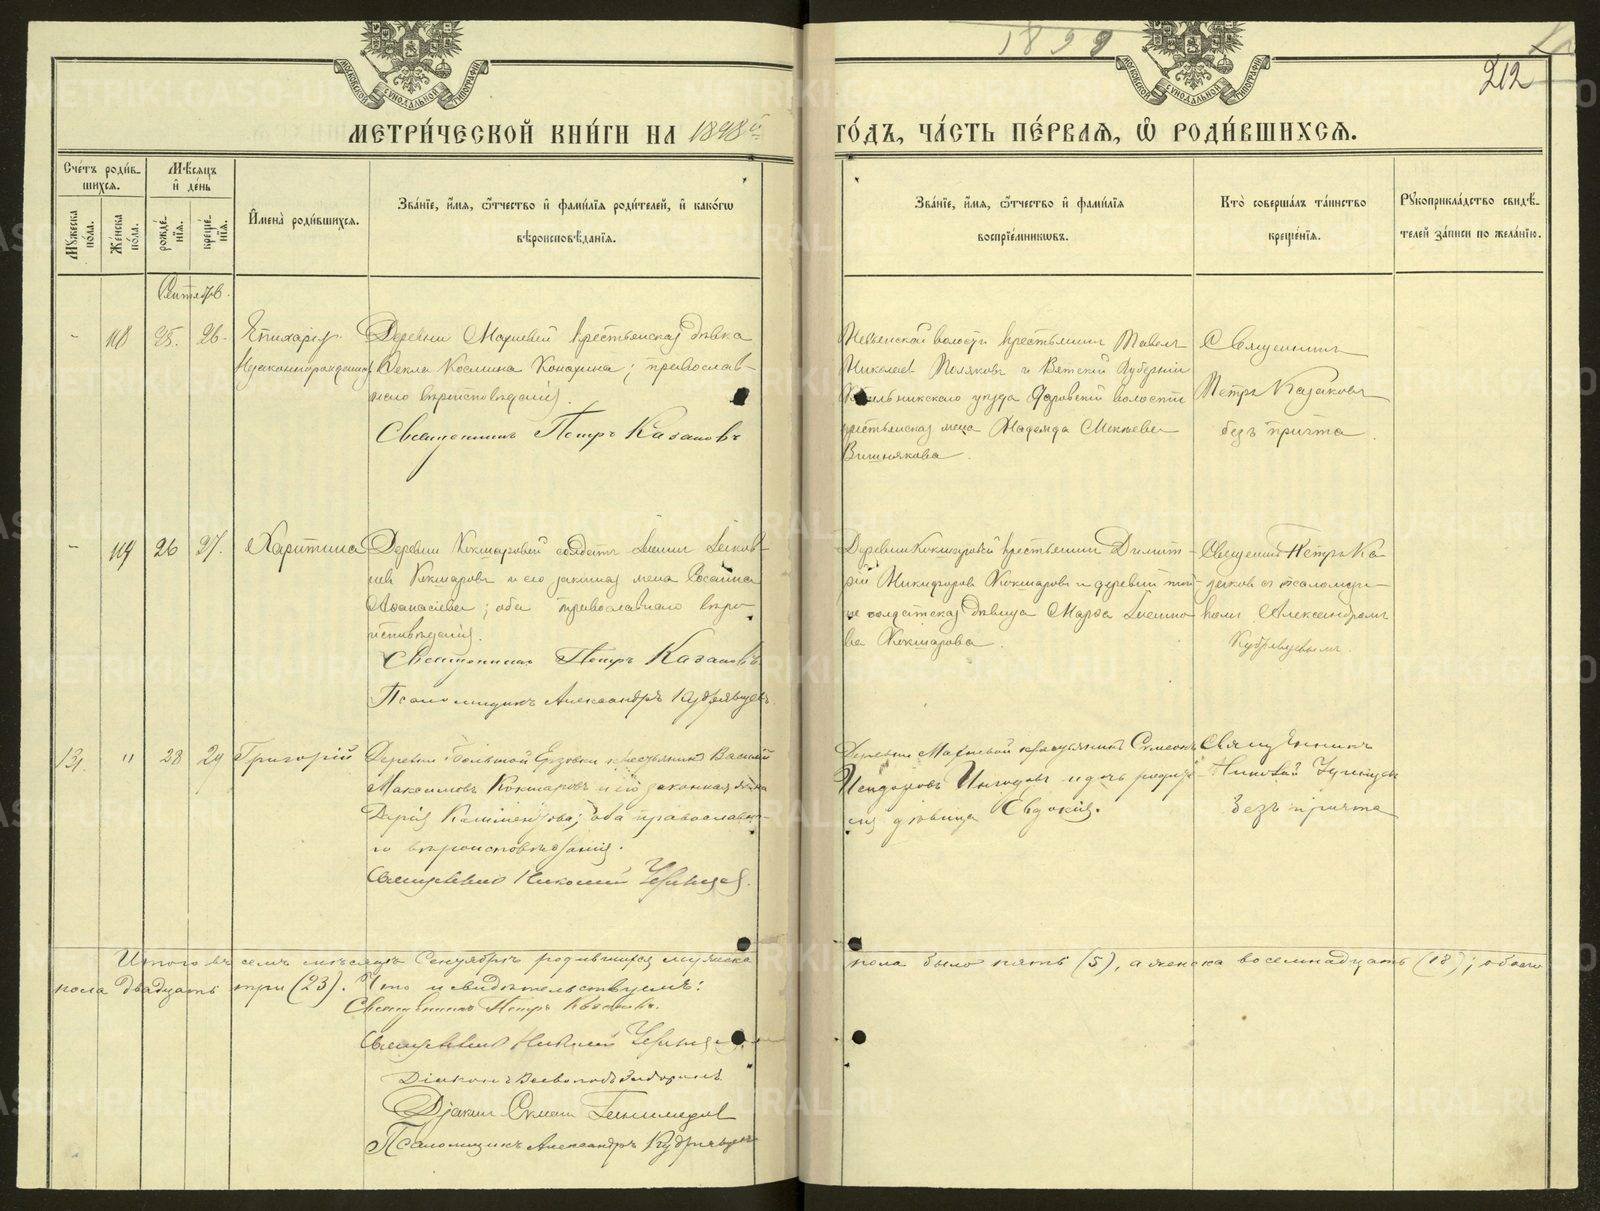 1899
212
МОСКОВСКОЙ СѴНОДАЛЬНОЙ ТИПОГРАФІИ
МОСКОВСКОЙ СѴНОДАЛЬНОЙ ТИПОГРАФІИ
МЕТРИ́ЧЕСКОЙ КНИ́ГИ НА 1898й ГО́ДЪ, ЧА́СТЬ ПЕ́РВАЯ, Ѿ РОДИ́ВШИХСЯ.
Сче́тъ роди́в-
шихся.
Мѣсяцъ
и҆ де́нь
Мꙋжеска по́ла.
Же́нска по́ла.
рожде́-
нїя.
креще́-
нїя.
И҆мена̀ роди́вшихся.
Зва́нїе, и҆́мя, ѻ҆́тчество и҆ фами́лїя роди́телей, и҆ како́гѡ
вѣроисповѣ́данїя.
Зва́нїе, и҆́мя, ѻ҆́тчество и҆ фами́лїя
воспрїе́мникѡвъ.
Кто̀ соверша́лъ та́инство
креще́нїя.
Рꙋкоприкла́дство свидѣ́-
телей за́писи по жела́нїю.
Сентябрь.
- 118 25. 26.
Епихарія
Незаконнорожденная
Деревни Махневой крестьянская дѣвка
Ѳекла Космина Кокарина; православ-
наго вѣроисповѣданія.
Священникъ Петръ Казаковъ
Невьянской волости крестьянинъ Павелъ
Николаевъ Поляковъ и Вятской Губерніи
Котельническаго уѣзда волости
крестьянская жена Надежда
Вишнякова.
Священникъ
Петръ Казаковъ
безъ причта.
- 119 26 27.
Харитина
Деревни Кокшаровой солдатъ
Кокшаровъ и его законная жена
Аѳанасіева; оба православнаго вѣро-
исповѣданія.
Священникъ Петръ Казаковъ
Псаломщикъ Александръ Кудрявцевъ
Деревни Кокшаровой крестьянинъ Димит-
рій Никифоровъ Кокшаровъ и деревни той-
же солдатская дѣвица Марѳа
Кокшарова.
Священникъ Петръ Ка-
заковъ съ псаломщи-
комъ Александромъ
Кудрявцевымъ.
131. " 28 29
Григорій
Деревни Большой Ерзовки крестьянинъ Василій
Максимовъ Кокшаровъ и его законная жена
Дарія Климентова; оба православна-
го вѣроисповѣданія.
Священникъ Николай
Деревни Махневой крестьянинъ Симеонъ
Исидоровъ и дочь
дѣвица Евдокія.
Священникъ
Николай
безъ причта
Итого въ семъ мѣсяцѣ Сентябрѣ родившихся мужеска пола было пять (5), а женска восемнадцать (18); обоего
пола двадцать три (23). Что и свидѣтельствуемъ:
Священникъ Петръ Казаковъ.
Священникъ Николай
Діаконъ Всеволодъ
Діаконъ Симеонъ
Псаломщикъ Александръ Кудрявцевъ